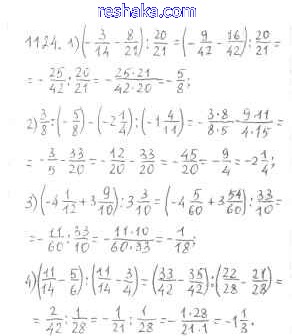 reshaka.com
1124. 1) (-3/14 - 8/21) : 20/21 = (-9/42 - 16/42) : 20/21 =
= -25/42 : 20/21 = -25·21/42·20 = -5/8;
2) 3/8 : (-5/8) - (-2 1/4) : (-1 4/11) = -3·8/8·5 - 9·11/4·15 =
= -3/5 - 33/20 = -12/20 - 33/20 = -45/20 = -9/4 = -2 1/4;
3) (-4 1/12 + 3 9/10) : 3 3/10 = (-4 5/60 + 3 54/60) : 33/10 =
= -11/60 : 33/10 = -11·10/60·33 = -1/18;
4) (11/14 - 5/6) : (11/14 - 3/4) = (33/42 - 35/42) : (22/28 - 21/28) =
= 2/42 : 1/28 = -1/21 : 1/28 = -1·28/21·1 = -1 1/3;